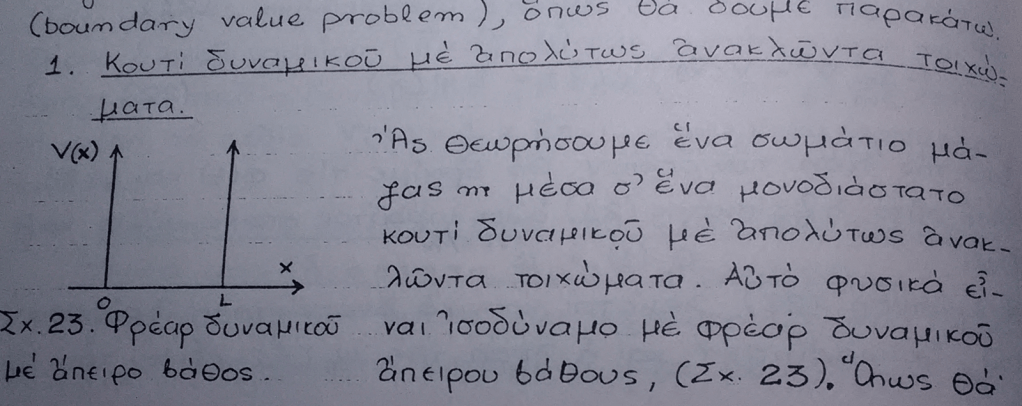 (boundary value problem), ὅπως θά δοῦμε παρακάτω.
1. Κουτί δυναμικοῦ μέ ἀπολύτως ἀνακλῶντα τοιχώ-
ματα.
V(x)
x
0
L
Σχ. 23. Φρέαρ δυναμικοῦ
μέ ἄπειρο βάθος.
Ἄς θεωρήσουμε ἕνα σωμάτιο μά-
ζας m μέσα σ' ἕνα μονοδιάστατο
κουτί δυναμικοῦ μέ ἀπολύτως ἀνακ-
λῶντα τοιχώματα. Αὐτό φυσικά εἶ-
ναι ἰσοδύναμο μέ φρέαρ δυναμικοῦ
ἄπειρου βάθους, (Σχ. 23). Ὅπως θά